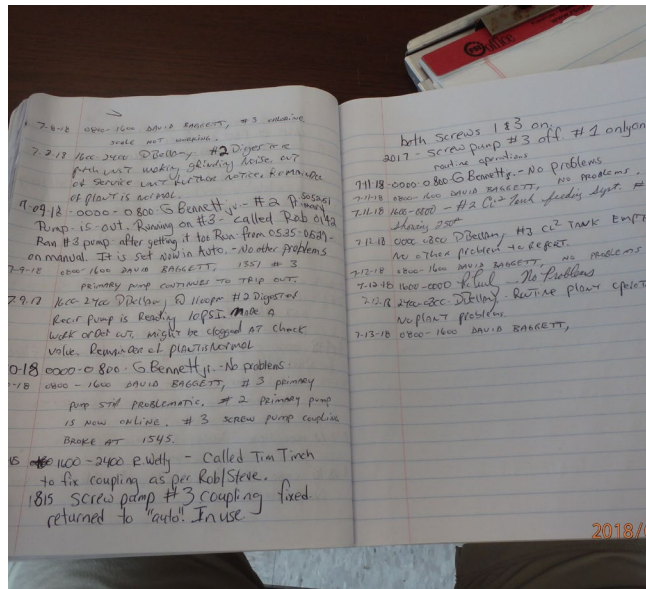 7-8-18 0800-1600 DAVID BAGGETT, #3 CHLORINE
SCALE NOT WORKING.
7-8-18 1600-2400 DBellamy, #2 Digester
making grinding noise, out
of service until further notice. Remainder
of plant is normal.
7-09-18 0000-0800 G Bennett jr. - #2 Primary
Pump is out. Running on #3 - called Rob 0142
Ran #3 pump after getting it to Run from 0535-0537
on manual. It is set now in Auto. - No other problems
7-9-18 0800-1600 DAVID BAGGETT, 1351 #3
PRIMARY PUMP CONTINUES TO TRIP OUT.
7-9-18 1600-2400 DBellamy, @ 1100pm #2 Digester
Recir pump is Reading 10PSI. Made a
work order out. Might be clogged at check
valve. Remainder of plant is Normal
0-18 0000-0800 - G Bennett jr. - No problems.
-18 0800-1600 DAVID BAGGETT, #3 PRIMARY
PUMP STILL PROBLEMATIC. #2 PRIMARY PUMP
IS NOW ONLINE. #3 SCREW PUMP COUPLING
BROKE AT 1545.
1600-2400 R. Welly - Called Tim Tinch
to fix coupling as per Rob/Steve.
1815 Screw pump #3 coupling fixed.
returned to "auto". In use
both screws 1 & 3 on.
2017 - Screw pump #3 off. #1 only on
routine operations
7-11-18 - 0000-0800 G Bennett jr. - No problems
7-11-18 0800-1600 DAVID BAGGETT, NO PROBLEMS.
7-11-18 1600-0000 - #2 CL2 Tank feeding syst. #
showing 250#
7-12-18 0000-0800 DBellamy, #3 CL2 TANK EMPT
No other problem to Report.
7-12-18 0800-1600 DAVID BAGGETT, NO PROBLEMS
7-12-18 1600-0000 - No Problems
7-12-18 2400-0800 DBellamy - Routine plant operat
No plant problems.
7-13-18 0800-1600 DAVID BAGGETT,
2018/0